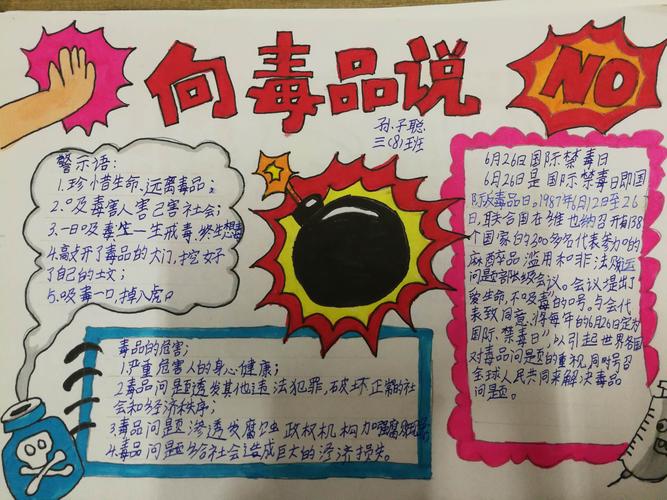 向毒品说
NO
孙子聪
三(8)班
警示语:
1.珍惜生命、远离毒品;
2.吸毒害人害己害社会;
3.一日吸毒,一生戒毒,终生想毒
4.敲开了毒品的大门,挖好
了自己的土文;
5.吸毒一口,掉入虎口
毒品的危害;
1.严重危害人的身心健康;
2毒品问题诱发其他违法犯罪,破坏正常的社
会和经济秩序;
3毒品问题渗透发腐蚀政权机构加
4.毒品问题给社会造成巨大的经济损失。
6月26日国际禁毒日
6月26是国际禁毒日即国
际反毒品日。1987年6月12日至26
日,联合国在维也纳召开有138
个国家的3000多名代表参加的
麻醉品滥用和非法贩运
问题部长级会议。会议提出了
爱生命,不吸毒的口号。与会代
表一致同意,将每年的6月26日定为
国际禁毒日",以引起世界各国
对毒品问题的重视,同时号召
全球人民共同来解决毒品
问题。